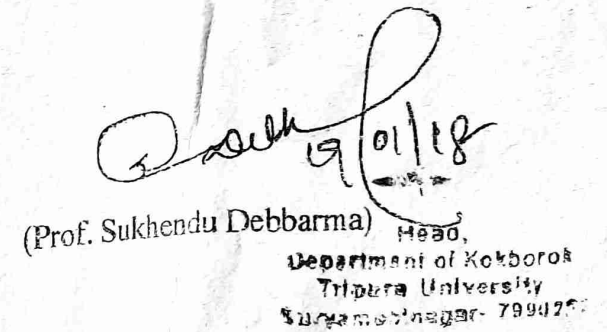 19/01/18
(Prof. Sukhendu Debbarma)
Head,
Department of Kokborok
Tripura University
Suryamaninagar-